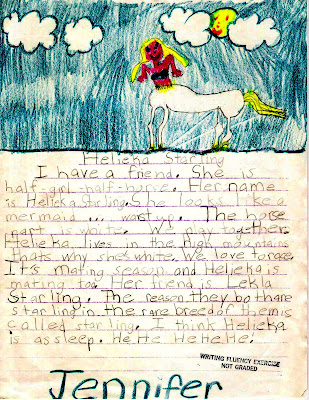 Helieka Starling
I have a friend. She is
half-girl-half-horse. Her name
is Helieka Starling. She looks like a
mermaid ... wast up. The horse
part is white. We play together.
Helieka lives in the high mountains
thats why she's white. We love to race.
It's mating season and Helieka is
mating too. Her friend is Lekla
Starling. The reason they both are
starling in the rare breed of them is
called starling. I think Helieka
is assleep. He He He He!
WRITING FLUENCY EXERCISE
NOT GRADED
Jennifer